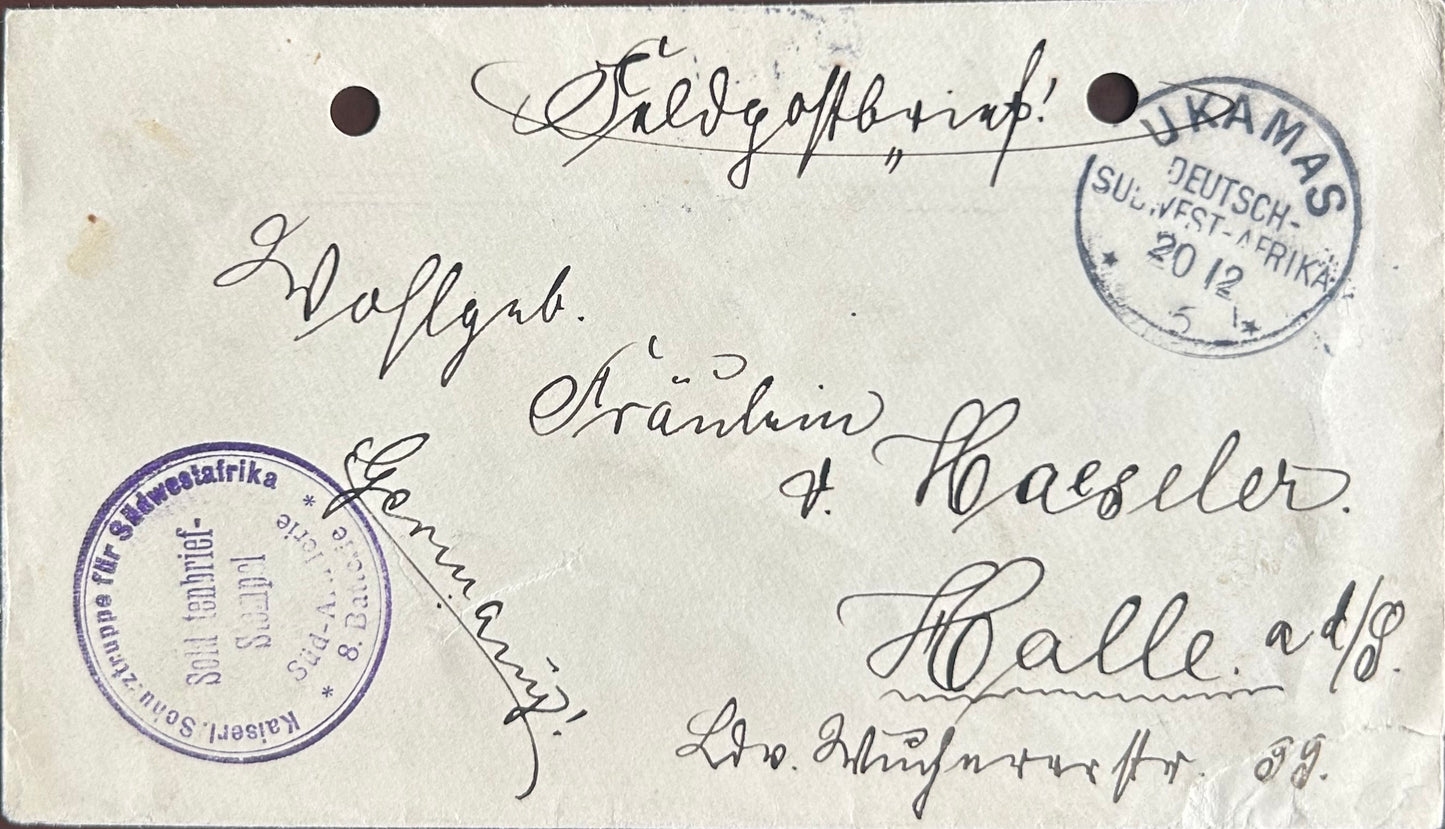 Feldpostbrief!
UKAMAS
DEUTSCH-
SÜDWEST-AFRIKA
20 12
Wohlgeb.
Fräulein
v. Haeseler.
Halle. a d/S.
Ldw. Wuchererstr. 99.
Germany!
Kaiserl. Schutztruppe für Südwestafrika
Soldatenbrief-
Stempel
* Süd-Artillerie *
8. Batterie